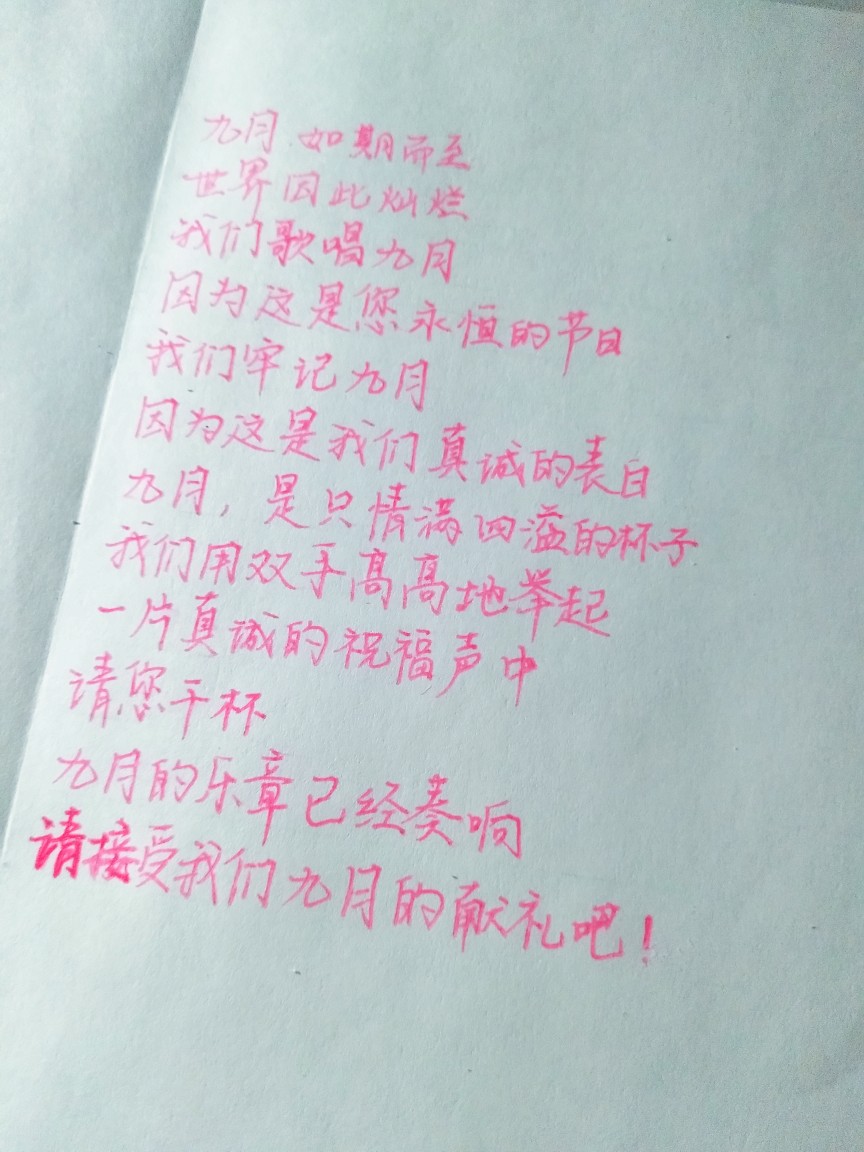 九月如期而至
世界因此灿烂
我们歌唱九月
因为这是您永恒的节日
我们牢记九月
因为这是我们真诚的表白
九月，是只情满四溢的杯子
我们用双手高高地举起
一片真诚的祝福声中
请您干杯
九月的乐章已经奏响
请接受我们九月的献礼吧！